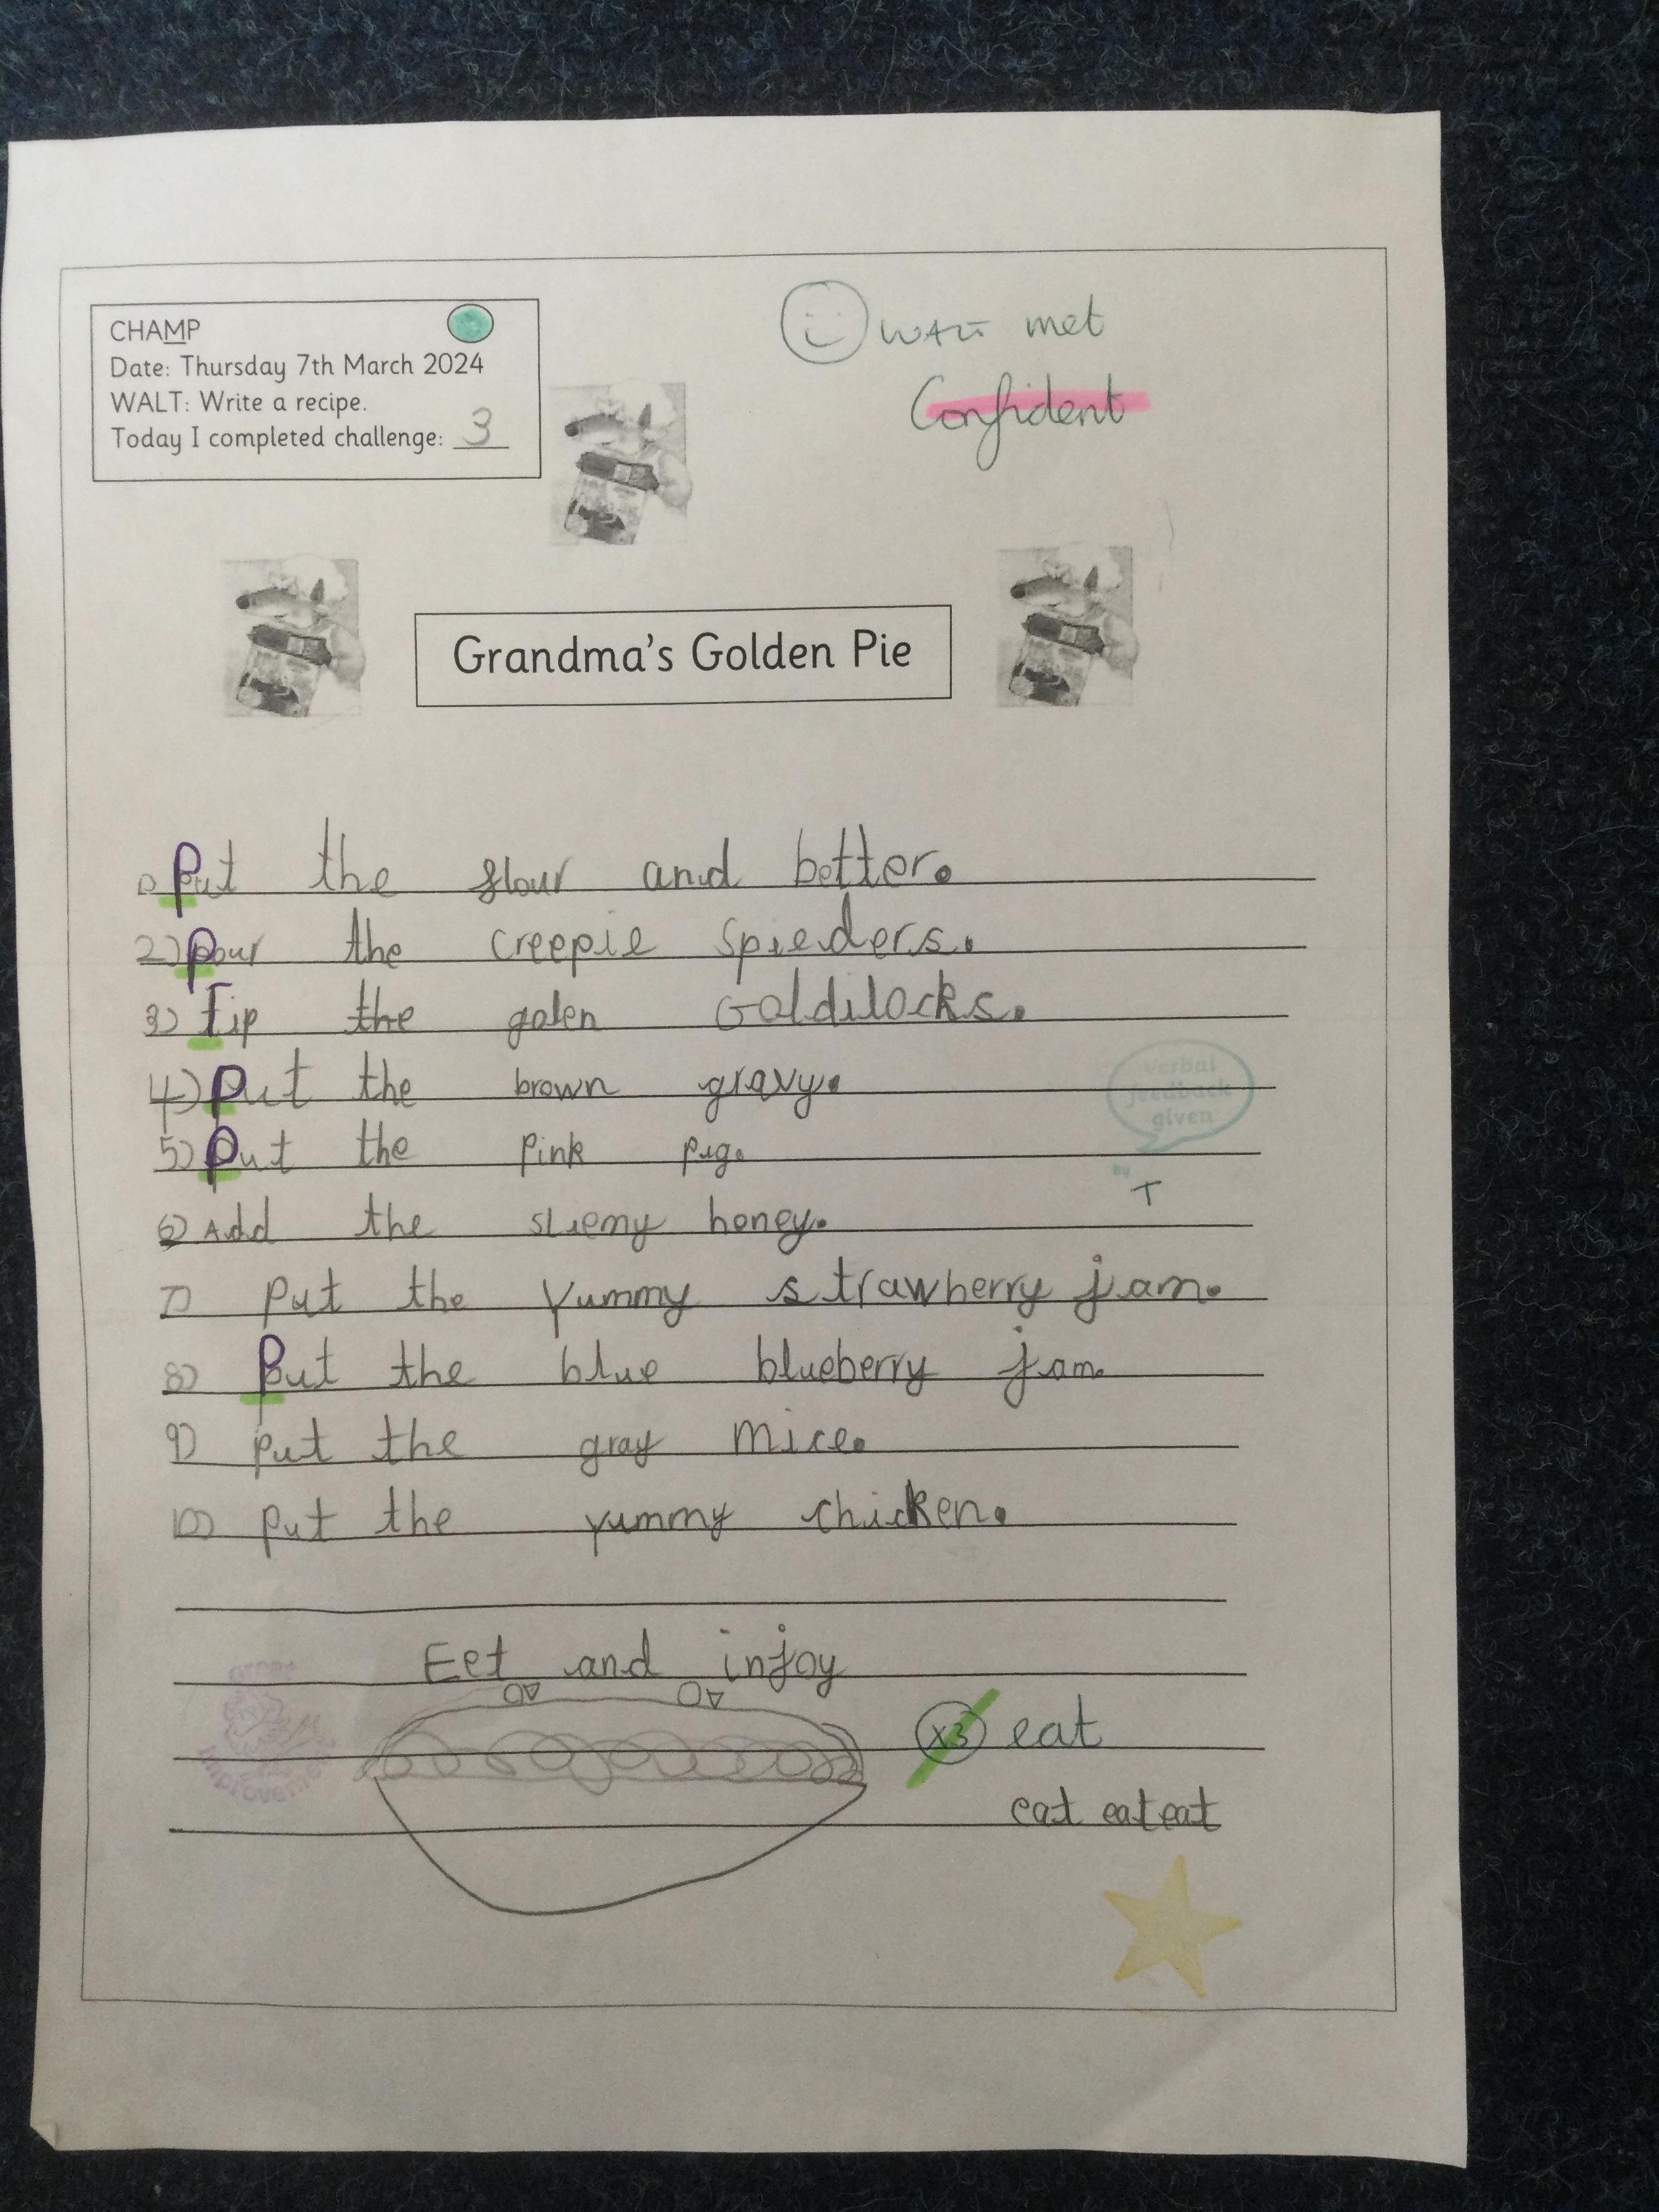 CHAMP
Date: Thursday 7th March 2024
WALT: Write a recipe.
Today I completed challenge: 3
WALT met
Confident
Grandma's Golden Pie
1) Put the flour and better.
2) Pour the creepie spieders.
3) Tip the golen Goldilocks.
4) Put the brown gravy.
5) Put the pink pig.
6) Add the sliemy honey.
7) Put the yummy strawberry jam.
8) Put the blue blueberry jam.
9) Put the gray mice.
10) Put the yummy chicken.
Verbal
feedback
given
By
T
Eet and injoy
Great
Improvement
x3 eat
eat eat eat